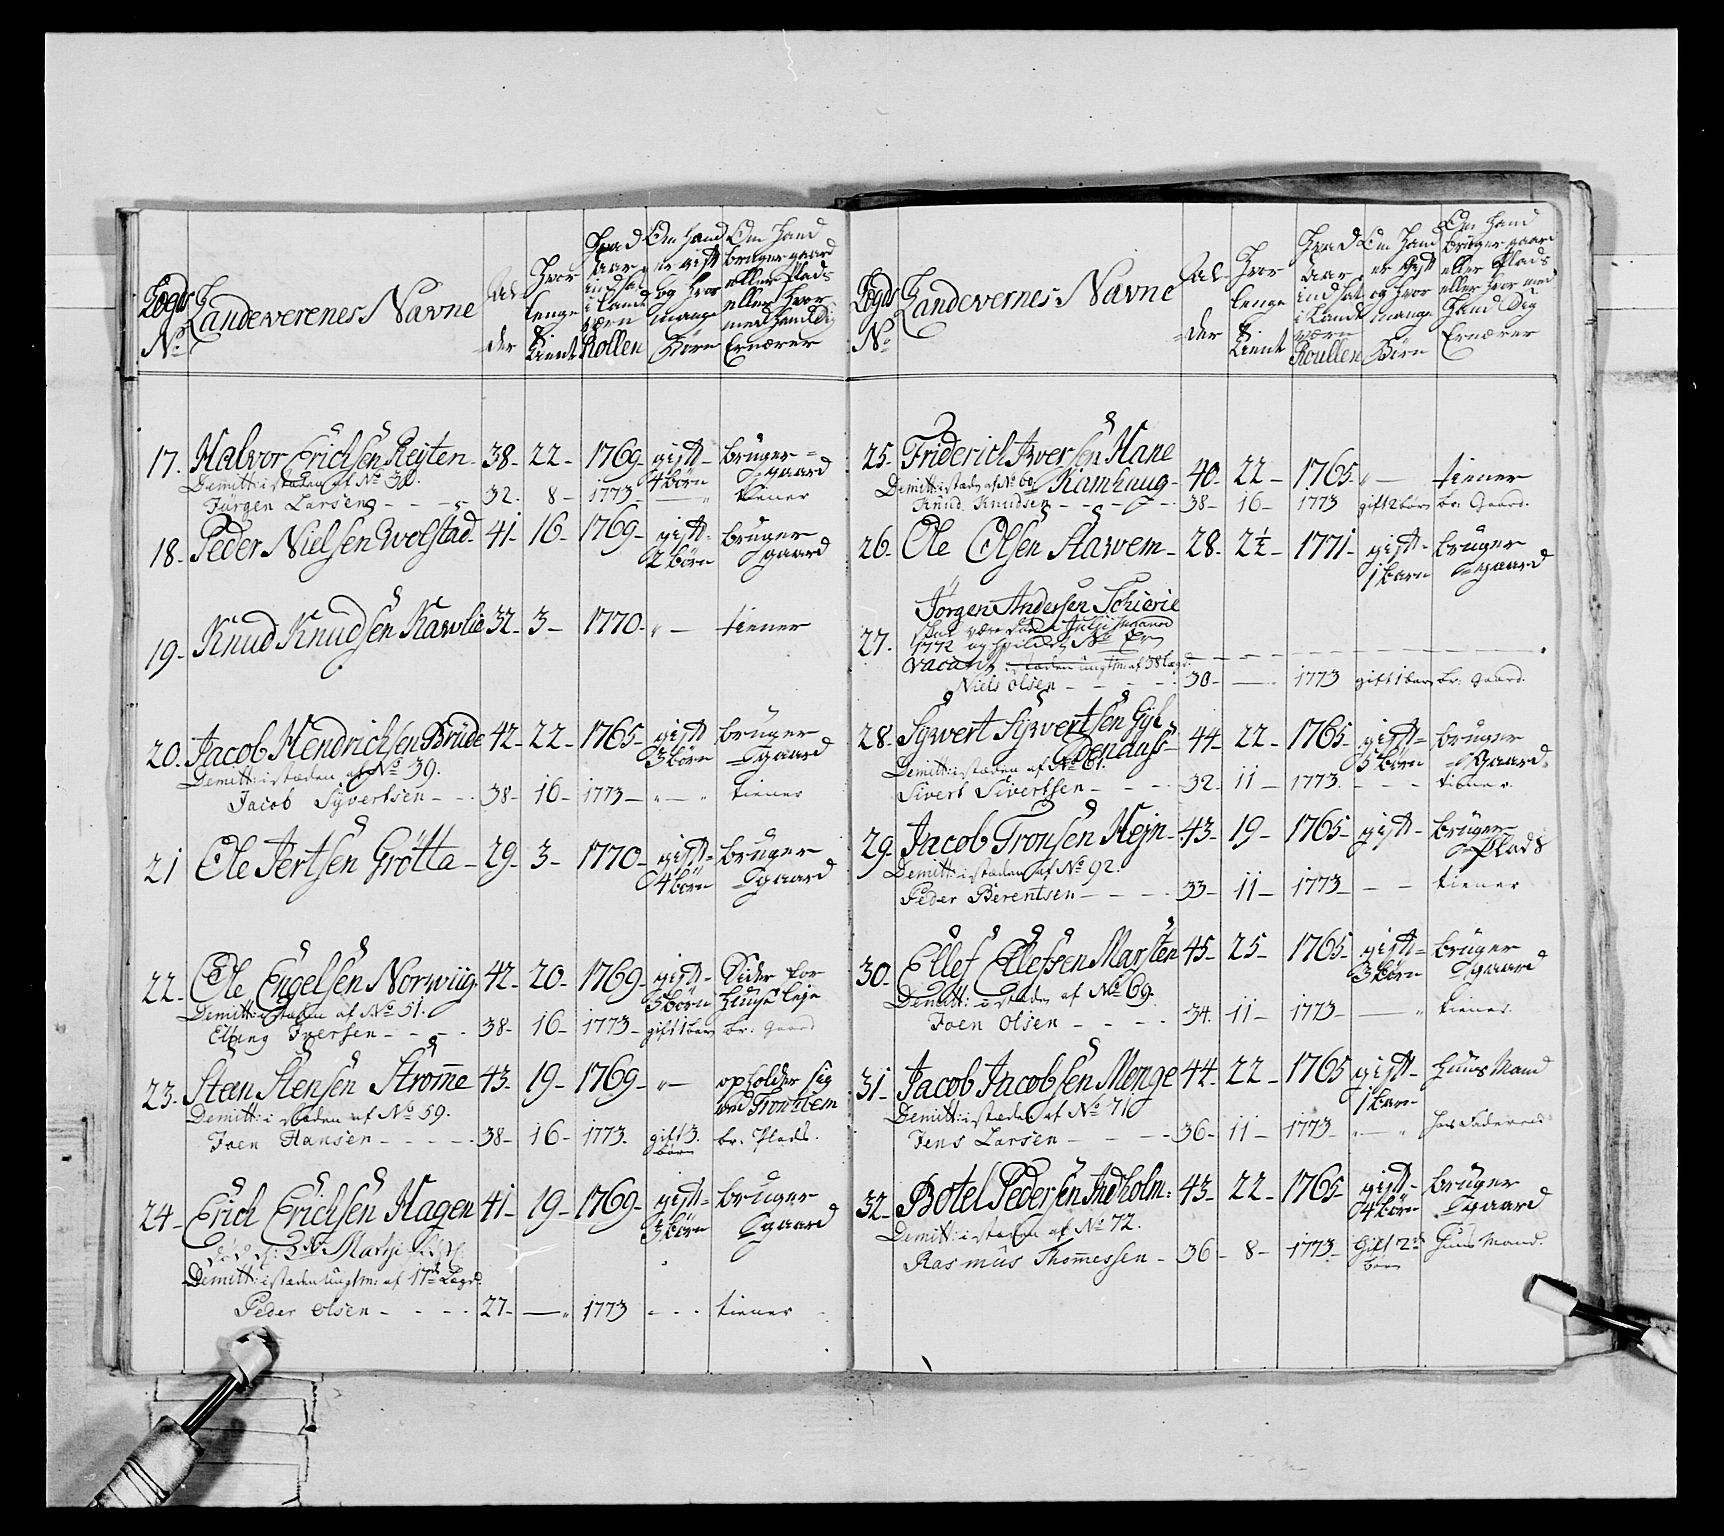 Legds No. Landeverenes Navne Al-der Hvor lenge tient Hvad Aar indsat i Land værn Rollen Om hand er gift og hvor mange Børn Om Hand bruger gaard eller Plads eller hvor med hand Sig Ernærer
17. Halvor Erichsen Reiten 38- 22- 1769- gift- 4 børn bruger gaard
Demitt: i stæden af No. 30.
Jürgen Larsen - - - 32. 8- 1773- — tiener
18. Peder Nielsen Wolstad 41- 16- 1769- gift- 2 børn bruger gaard
19- Knud Knudsen Kawlie 32- 3- 1770- „— tiener
20. Jacob Hendrichsen Brude 42- 22- 1765- gift 3 børn bruger gaard
Demitt: i stæden af No. 39.
Jacob Syvertsen - - 38- 16- 1773- „—„ tiener
21 Ole Jertsen Grøtta- 29- 3- 1770- gift- 4 børn bruger gaard
22- Ole Engelsen Norwiig 42- 20- 1769- gift- 3 børn Sider for Huuse leje
Demitt: i stæden af No. 51.
Iversen - - - 38- 16- 1773- gift 1 barn br: Gaard
23. Steen Stensen Strømme 43- 19- 1769- „— opholder sig ved Tronhiem
Demitt: i stæden af No. 59.
Joen Hansen - - - - 38- 16- 1773. gift 3. børn br. Plads.
24- Erich Erichsen Hagen 41- 19- 1769- gift- 3 børn bruger gaard
Død d: 3die Martji
Demitt: i stæden ungtm: af 17de Legd.
Peder Olsen - - - - 27- — „ 1773 - - - tiener
Legds No. Landevernes Navne Al-der Hvor lenge tient Hvad Aar indsat i Land værn Roullen Om Hand er gift og hvor mange Børn Om Hand bruger gaard eller Plads eller hvor med Hand Sig Ernærer
25. Friderich Iversen Hane
Kamhaug- 40- 22- 1765- „— tiener
Demitt: i stæden af No. 60
Knud Knudsen - - - - 38- 16- 1773 gift 2 børn br: Gaard.
26. Ole Olsen Aarvem- 28- 2½- 1771- gift- 1 barn bruger gaard
Jørgen Andersen Schierie
27. skal være Død i Julji maaned
1772 No. Er
vacant i stæden ungtm: af 38 Legd.
Niels Olsen - - - - 30- — 1773 gift 1 barn br: Gaard.
28. Sywert Sywertsen Gyl
44- 22- 1765- gift- 5 børn bruger gaard
Demitt: i stæden af No. 61.
Sivert Sivertsen - - - 32. 11- 1773. - - - tiener.
29. Jacob Tronsen Hejn- 43- 19- 1765- gift- bruger Plads
Demitt: i stæden af No. 92.
Peder Berentsen - - - 33- 11- 1773- - - tiener
30. Ellef Ellefsen Marsten 45- 25- 1765- gift- 3 børn bruger gaard
Demitt: i stæden af No. 69.
Joen Olsen - - - - 34. 11- 1773- —„ tiener.
31- Jacob Jacobsen Monge 44- 22- 1765 gift- 1 barn Huus Mand
Demitt: i stæden af No. 71
Jens Larsen - - - 36- 11- 1773- „—„ hos Faderen
32- Botel Pedersen Indholm- 43- 22- 1765- gift- 4 børn bruger gaard
Demitt: i stæden af No. 72.
Rasmus Thomessen- 36- 8- 1773- Gift 2 børn Huus Mand.